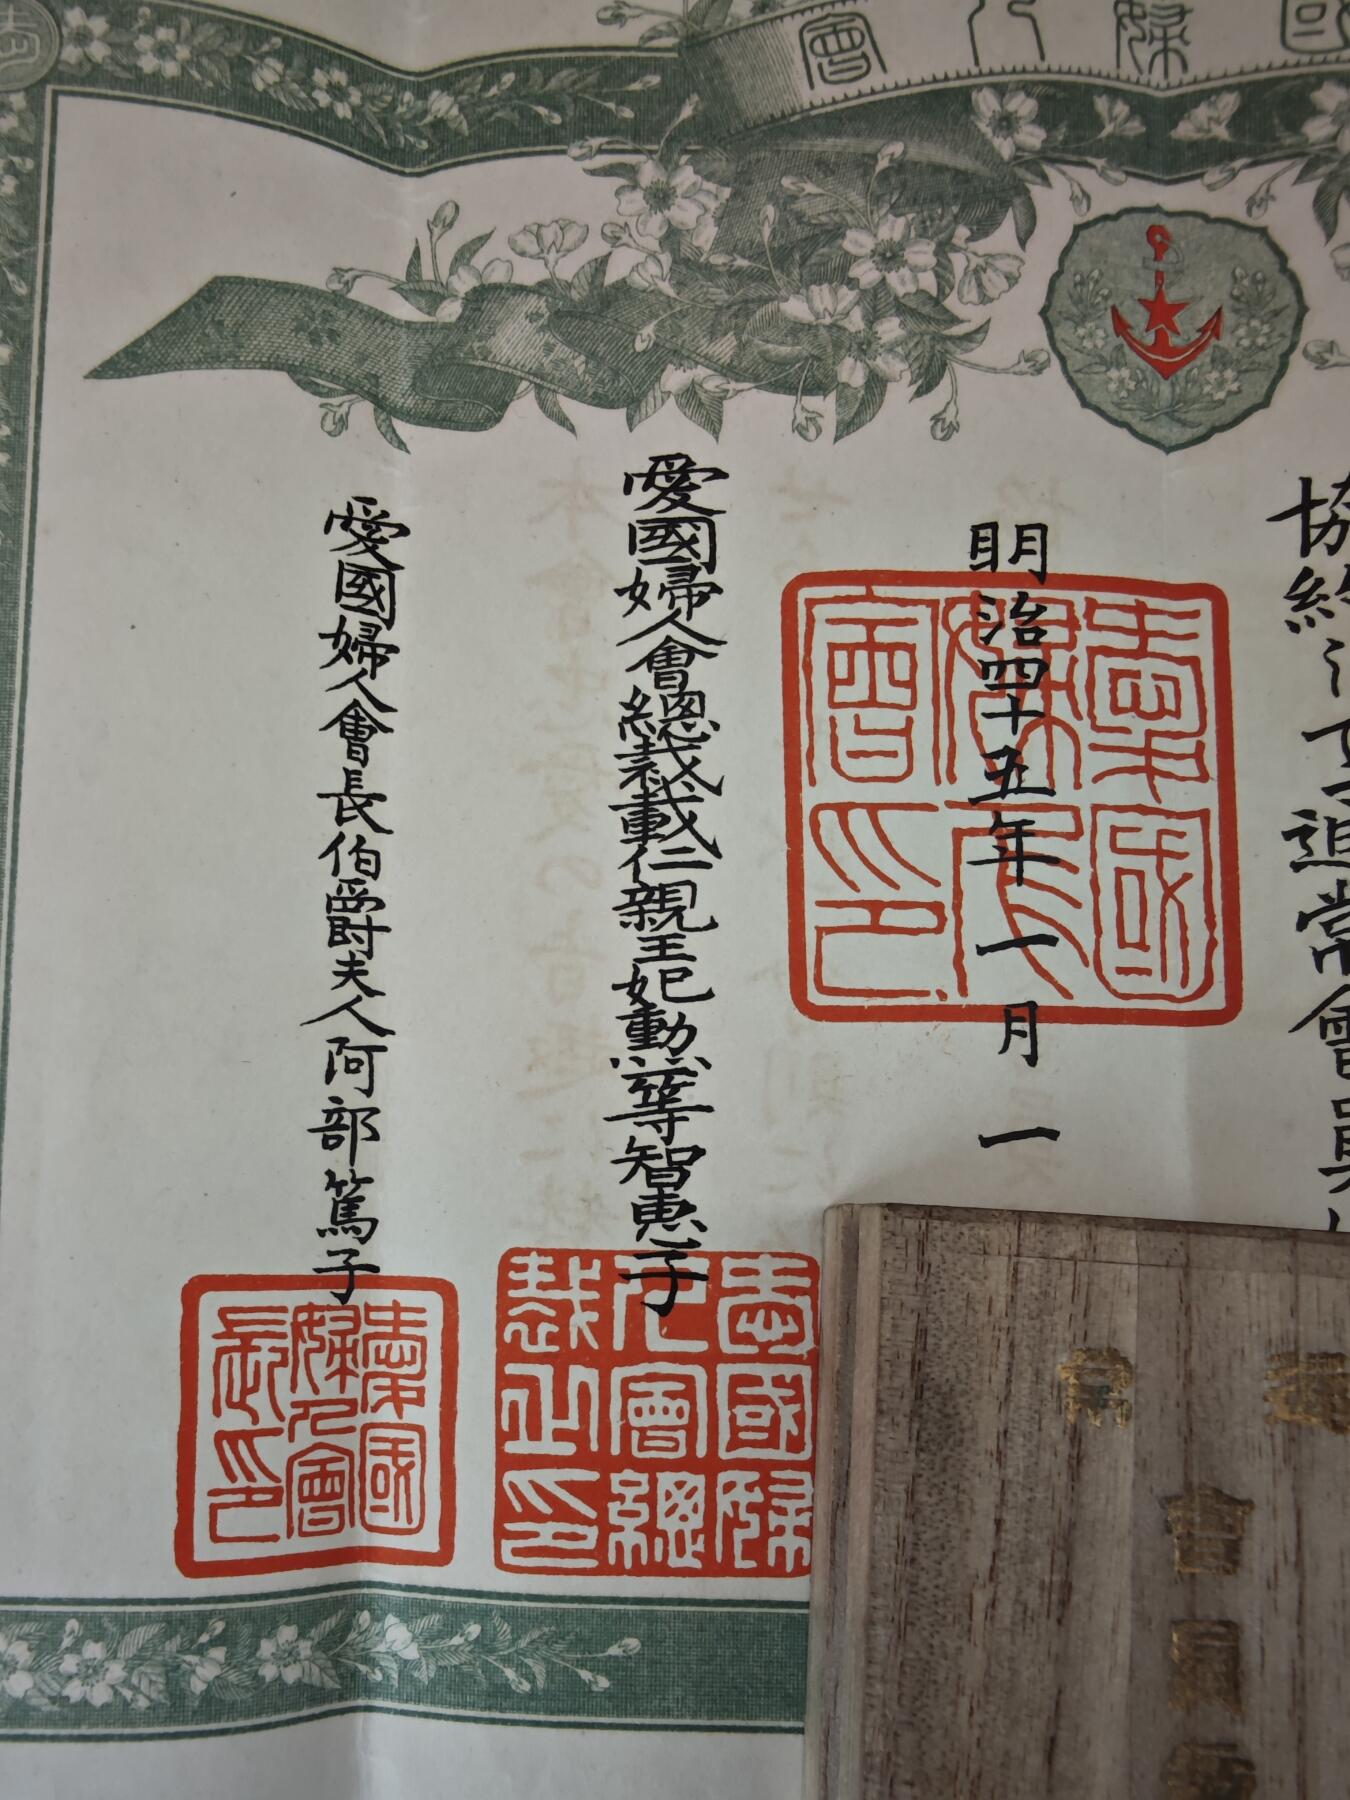 國婦人會
協
迫常會員
明治四十五年一月一
愛國婦人會總裁載仁親王妃勳一等智惠子
愛國婦人會長伯爵夫人阿部篤子
愛國婦人會印
愛國婦人會總裁之印
愛國婦人會長之印
會員